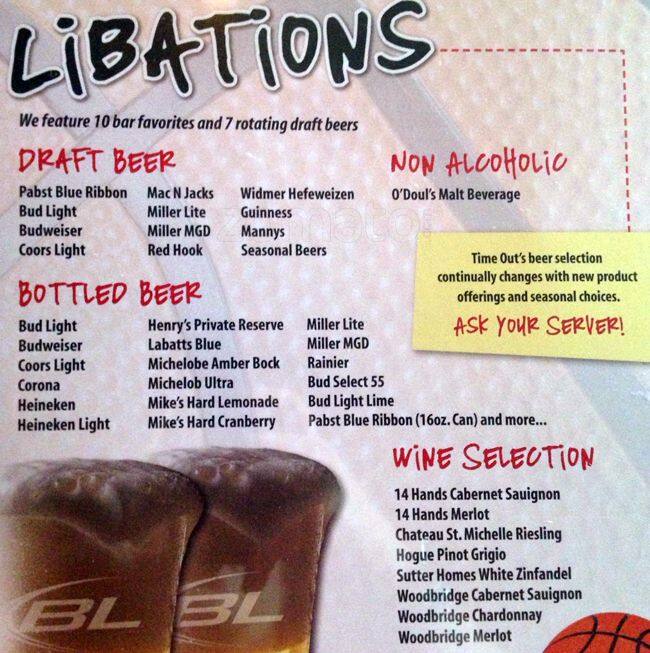 LiBATiONS
We feature 10 bar favorites and 7 rotating draft beers
DRAFT BEER
Pabst Blue Ribbon Mac N Jacks Widmer Hefeweizen
Bud Light Miller Lite Guinness
Budweiser Miller MGD Mannys
Coors Light Red Hook Seasonal Beers
NON ALCOHOLIC
O'Doul's Malt Beverage
Time Out's beer selection
continually changes with new product
offerings and seasonal choices.
ASK YOUR SERVER!
BOTTLED BEER
Bud Light Henry's Private Reserve Miller Lite
Budweiser Labatts Blue Miller MGD
Coors Light Michelobe Amber Bock Rainier
Corona Michelob Ultra Bud Select 55
Heineken Mike's Hard Lemonade Bud Light Lime
Heineken Light Mike's Hard Cranberry Pabst Blue Ribbon (16oz. Can) and more...
WiNE SELECTiON
14 Hands Cabernet Sauignon
14 Hands Merlot
Chateau St. Michelle Riesling
Hogue Pinot Grigio
Sutter Homes White Zinfandel
Woodbridge Cabernet Sauvignon
Woodbridge Chardonnay
Woodbridge Merlot
BL BL
zomato